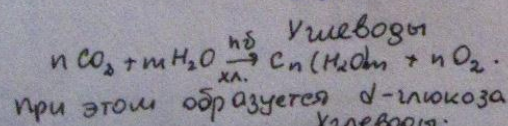 Углеводы
nCO₂ + mH₂O →(hб / хл.) Cn(H₂O)m + nO₂.
при этом образуется d-глюкоза
Углеводы.